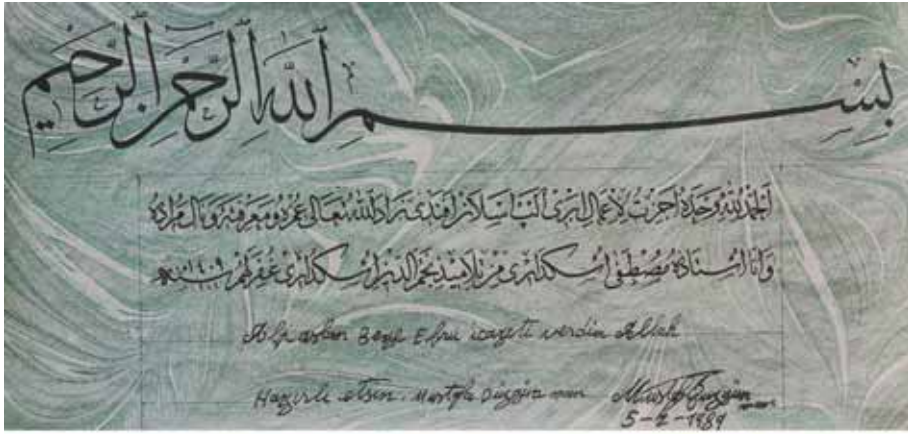 بِسْمِ اللهِ الرَّحْمٰنِ الرَّحِيمِ
اَلْحَمْدُ لِلّٰهِ وَحْدَهُ اَجَزْتُ لِاَعْمَالِ اَبْرِى اَلْب اَرْسَلَانْ اَفَنْدِى زَادَ اللهُ تَعَالٰى عُمْرَهُ وَمَعْرِفَتَهُ وَنَالَ مُرَادَهُ
وَاَنَا اُسْتَاذُهُ مُصْطَفٰى اُسْكُدَارِى مِنْ تَلَامِيذِ نَجْمِ الدِّينْ اُسْكُدَارِى غُفِرَ لَهُمْ ١٤٠٩
Alp aslan Beye Ebru icazeti verdim Allah
Hayırlı etsin. Mustafa Düzgünman Mustafa Düzgünman
5-2-1989